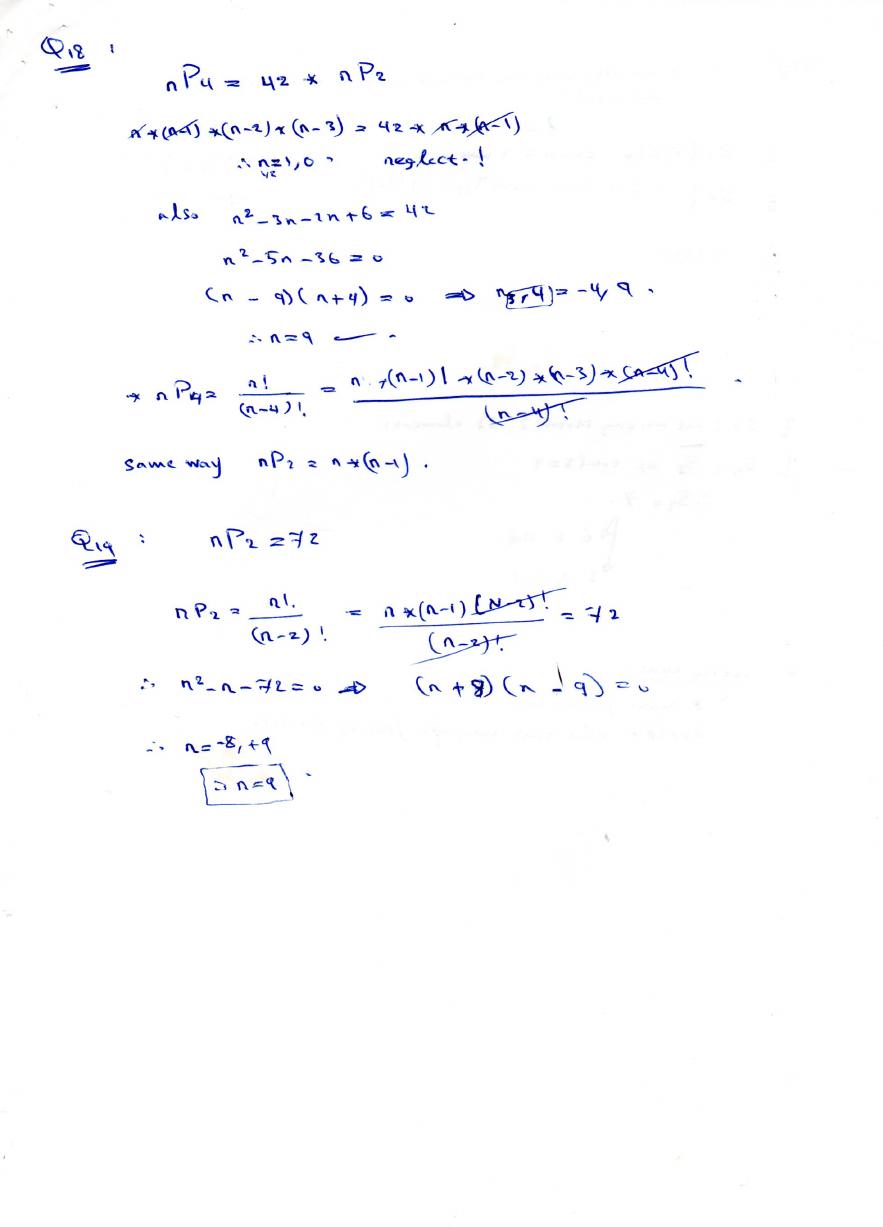 Q18 :
nP4 = 42 * nP2
n*(n-1)*(n-2)*(n-3) = 42 * n*(n-1)
∴ n=1,0 neglect. !
also n²-3n-2n+6 = 42
n²-5n-36 = 0
(n - 9)(n+4) = 0 ⇒ = -4, 9 .
∴ n=9
* nP4 = n! / (n-4)! = n *(n-1) *(n-2)*(n-3)*(n-4)! / (n-4)!
same way nP2 = n*(n-1) .
Q19 : nP2 = 72
nP2 = n! / (n-2)! = n*(n-1)(n-2)! / (n-2)! = 72
∴ n²-n-72=0 ⇒ (n+8)(n-9)=0
∴ n=-8,+9
∴ n=9